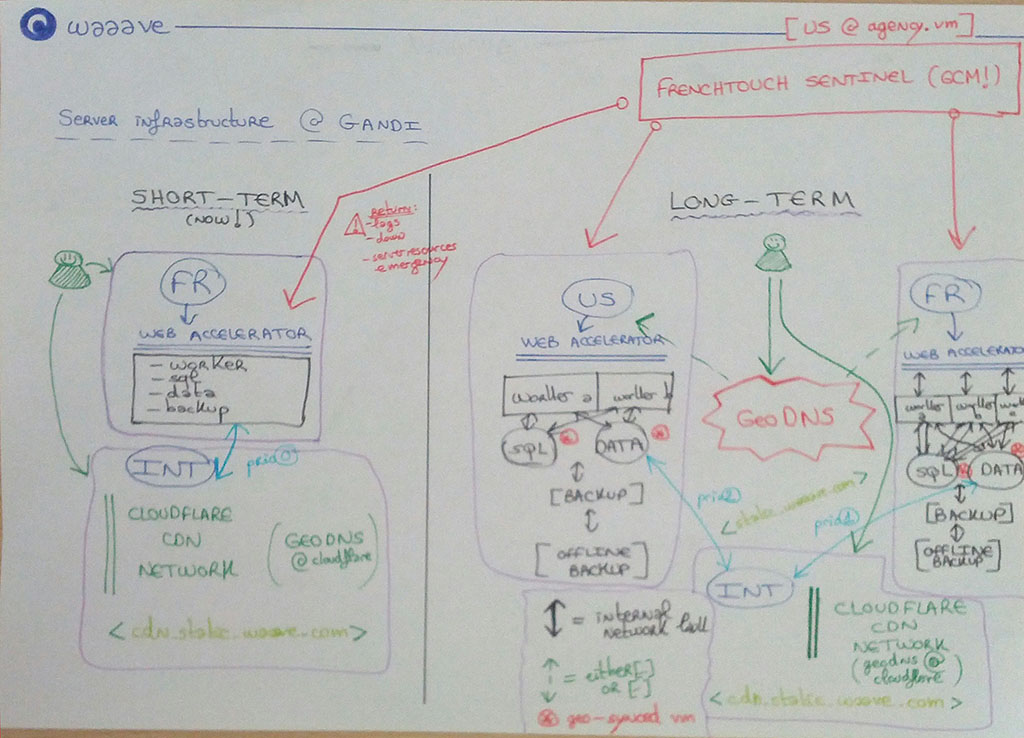 waaave
[US @ agency.vm]
FRENCHTOUCH SENTINEL (GCM!)
SERVER infrastructure @ GANDI
SHORT-TERM
(NOW!)
Returns:
-logs
-down
-server resources
emergency
FR
WEB ACCELERATOR
- worker
- sql
- data
- backup
INT
prio 0
CLOUDFLARE
CDN
NETWORK
(GEODNS
@cloudflare)
<cdn.static.waaave.com>
LONG-TERM
US
WEB ACCELERATOR
worker a
worker b
SQL
DATA
[BACKUP]
[OFFLINE
BACKUP]
GeoDNS
prio 2
<static.waaave.com>
prio 1
FR
WEB ACCELERATOR
worker a
worker b
SQL
DATA
[BACKUP]
[OFFLINE
BACKUP]
INT
CLOUDFLARE
CDN
NETWORK
(geodns @
cloudflare)
<cdn.static.waaave.com>
= internal
network call
= either[-]
OR [-]
geo-synced vm